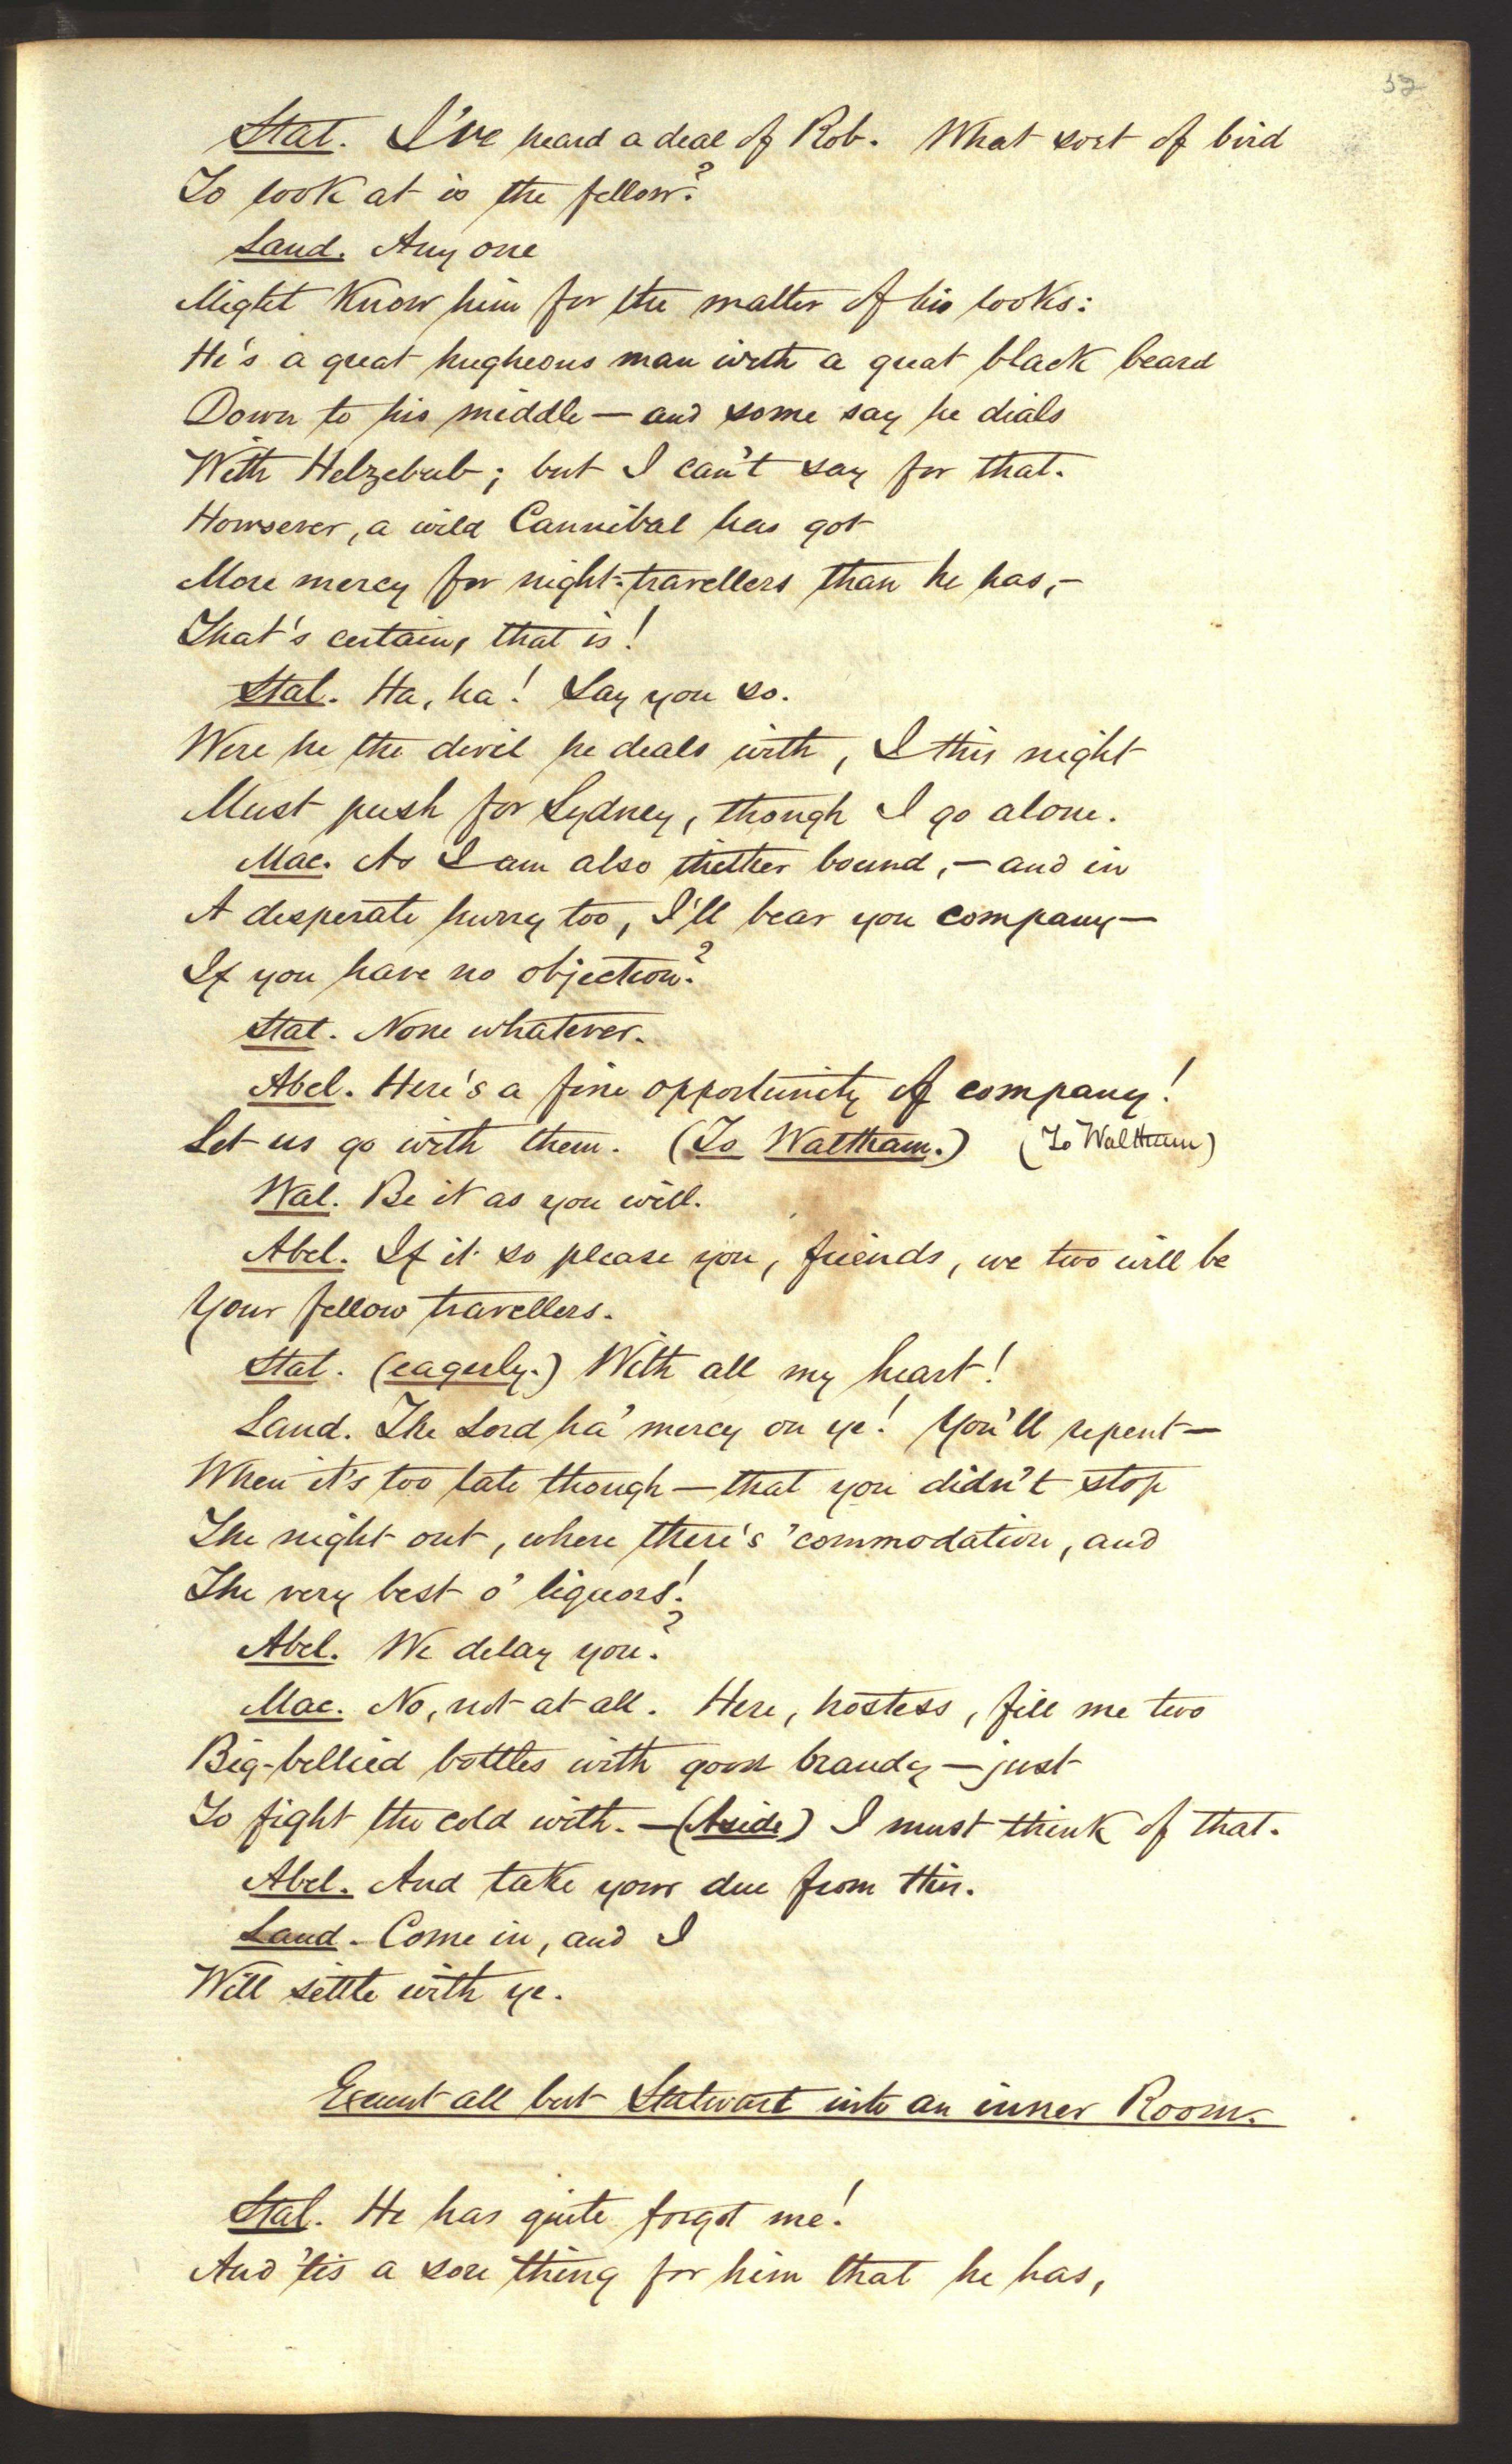 32
Stal. I've heard a deal of Rob. What sort of bird
To look at is the fellow?
Land. Any one
Might know him for the matter of his looks:
He's a great hugheous man with a great black beard
Down to his middle — and some say he dials
With Helzebub; but I can't say for that.
Howsever, a wild Cannibal has got
More mercy for night-travellers than he has,—
That's certain, that is!
Stal. Ha, ha! Say you so.
Were he the devil he deals with, I this night
Must push for Sydney, though I go alone.
Mac. As I am also thither bound,— and in
A desperate hurry too, I'll bear you company —
If you have no objection?
Stal. None whatever.
Abel. Here's a fine opportunity of company!
Let us go with them. (To Waltham.) (To Waltham)
Wal. Be it as you will.
Abel. If it so please you, friends, we two will be
Your fellow travellers.
Stal. (eagerly.) With all my heart!
Land. The Lord ha' mercy on ye! You'll repent —
When it's too late though — that you didn't stop
The night out, where there's 'commodation, and
The very best o' liquors!
Abel. We delay you?
Mac. No, not at all. Here, hostess, fill me two
Big-bellied bottles with good brandy — just
To fight the cold with. — (Aside) I must think of that.
Abel. And take your due from this.
Land. Come in, and I
Will settle with ye.
Exeunt all but Stalwart into an inner Room.
Stal. He has quite forgot me!
And 'tis a sore thing for him that he has,